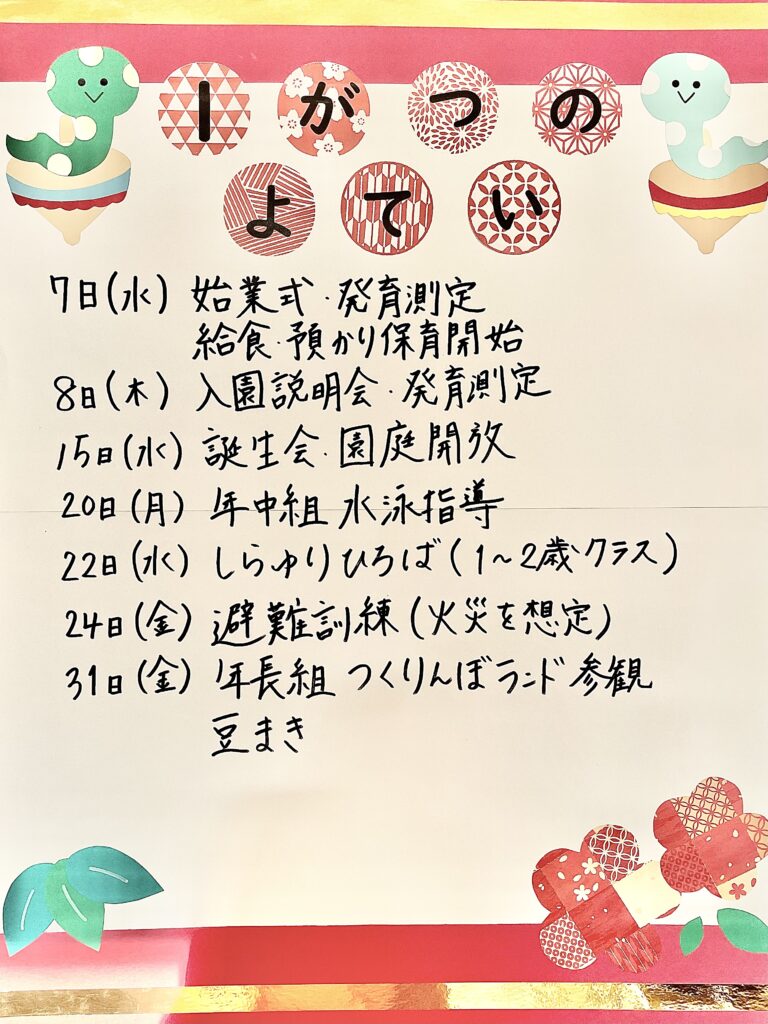 1がつの
よてい
7日(水) 始業式・発育測定
給食・預かり保育開始
8日(木) 入園説明会・発育測定
15日(水) 誕生会・園庭開放
20日(月) 年中組 水泳指導
22日(水) しらゆりひろば(1〜2歳クラス)
24日(金) 避難訓練(火災を想定)
31日(金) 年長組 つくりんぼランド参観
豆まき